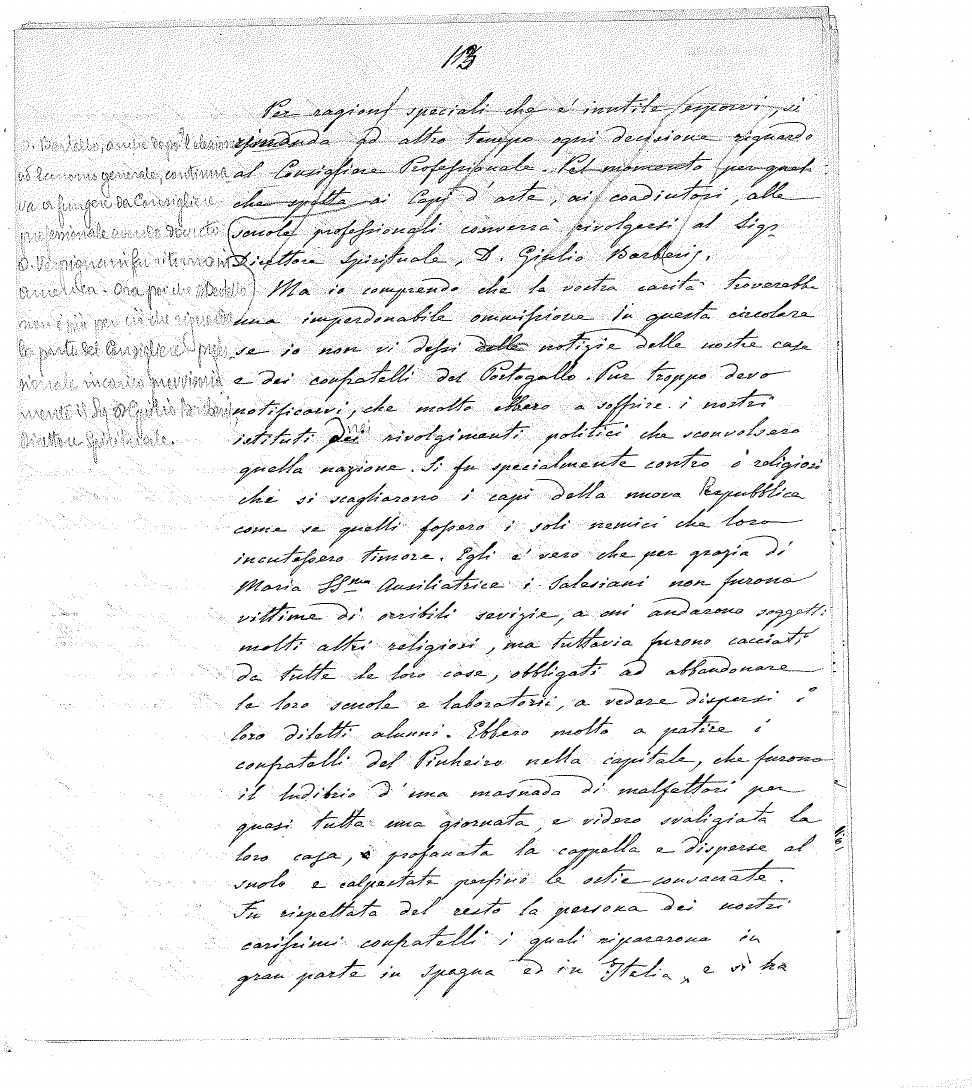 113
Per ragioni speciali che è inutile esporvi, si
rimanda ad altro tempo ogni decisione riguardo
al Consigliere Professionale. Pel momento per quel
che spetta ai Capi d'arte, ai coadiutori, alle
scuole professionali converrà rivolgersi al Sigr
Direttore Spirituale, D. Giulio Barberis.
D. Bertello, anche dopo l'elezione
ad Economo generale, continua
va a fungere da Consigliere
professionale avendo dovuto
D. Vespignani far ritorno in
America. Ora poi che D. Bertello
non è più per ciò che riguarda
la parte del Consigliere profes
sionale incarico provvisoria
mente il Sig. D. Giulio Barberis
Direttore Spirituale.
Ma io comprendo che la vostra carità troverebbe
una imperdonabile ommissione in questa circolare
se io non vi dessi delle notizie delle nostre case
e dei confratelli del Portogallo. Pur troppo devo
notificarvi, che molto ebbero a soffrire i nostri
istituti nei rivolgimenti politici che sconvolsero
quella nazione. Si fu specialmente contro i religiosi
che si scagliarono i capi della nuova Repubblica
come se quelli fossero i soli nemici che loro
incutessero timore. Egli è vero che per grazia di
Maria SSma Ausiliatrice i Salesiani non furono
vittime di orribili sevizie, a cui andarono soggetti
molti altri religiosi, ma tuttavia furono cacciati
da tutte le loro case, obbligati ad abbandonare
le loro scuole e laboratorii, a vedere dispersi i
loro diletti alunni. Ebbero molto a patire i
confratelli del Pinheiro nella capitale, che furono
il ludibrio d'una masnada di malfattori per
quasi tutta una giornata, e videro svaligiata la
loro casa, profanata la cappella e disperse al
suolo e calpestate perfino le ostie consacrate.
Fu rispettata del resto la persona dei nostri
carissimi confratelli i quali ripararono in
gran parte in Spagna ed in Italia, e si ha